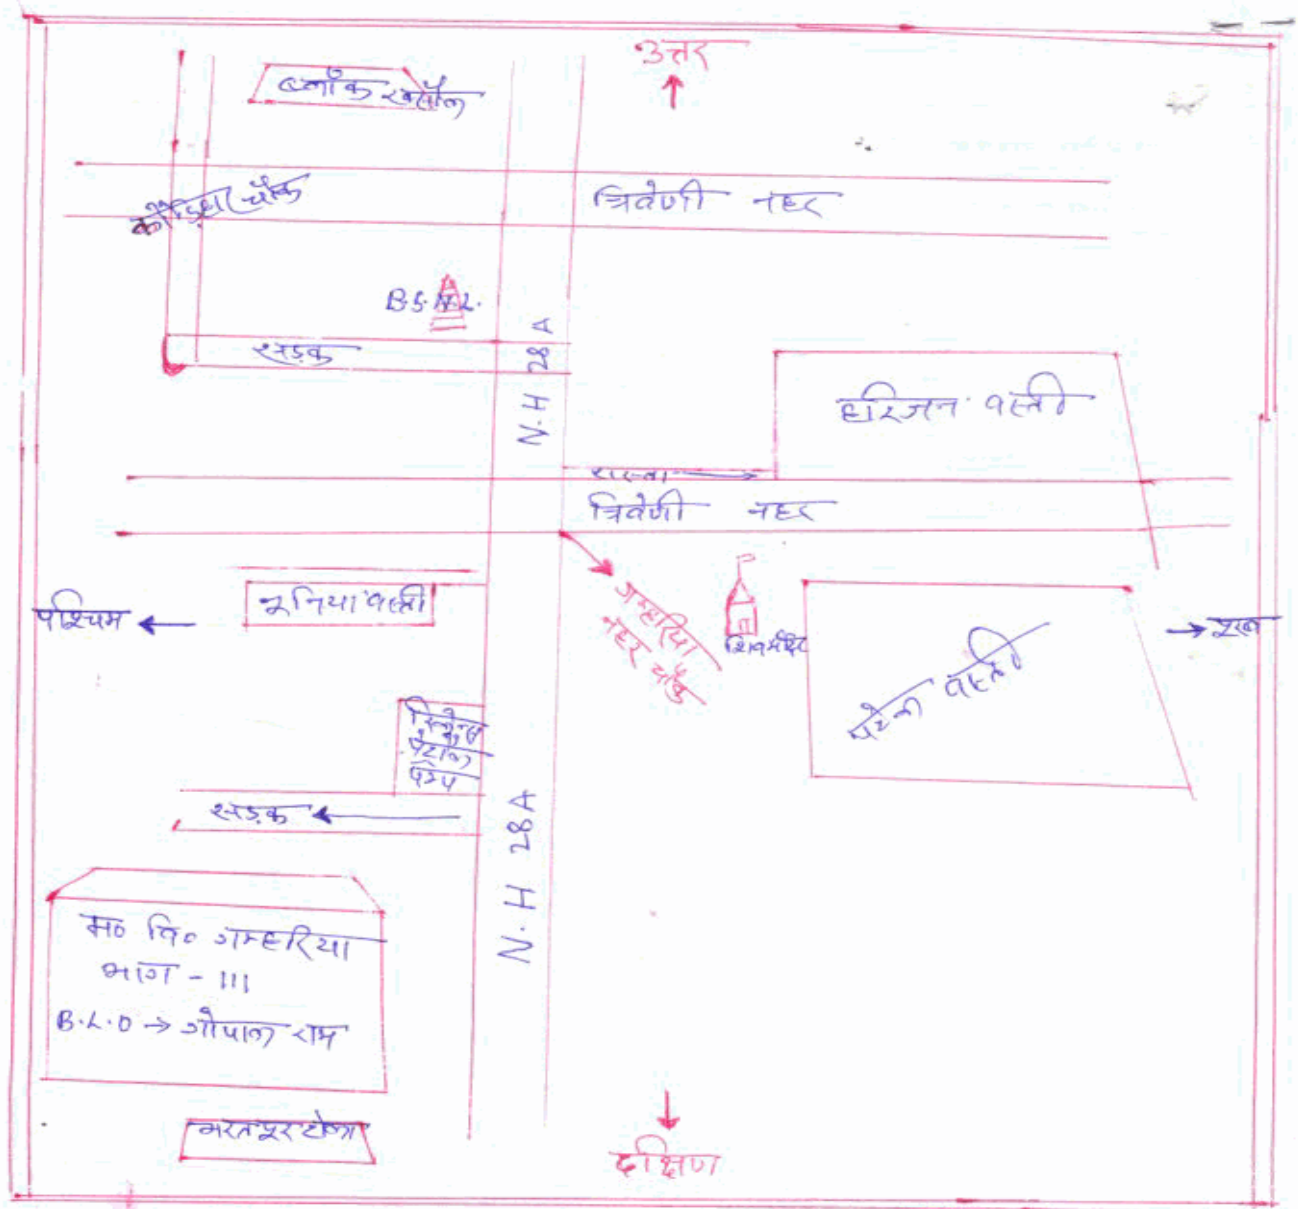 उत्तर
↑
ब्लॉक रक्सौल
कौड़िहार चौक
त्रिवेणी नहर
B.S.N.L.
सड़क
N.H 28 A
हरिजन वस्ती
रास्ता →
त्रिवेणी नहर
नुनिया वस्ती
पश्चिम ←
गम्हरिया
नहर चौक
शिव मंदिर
→ पूरब
पटेल वस्ती
रिलायन्स
पेट्रोल
पम्प
सड़क ←
N.H 28 A
म० वि० गम्हरिया
भाग - III
B.L.O → गोपाल राम
भरतपुर टोला
↓
दक्षिण